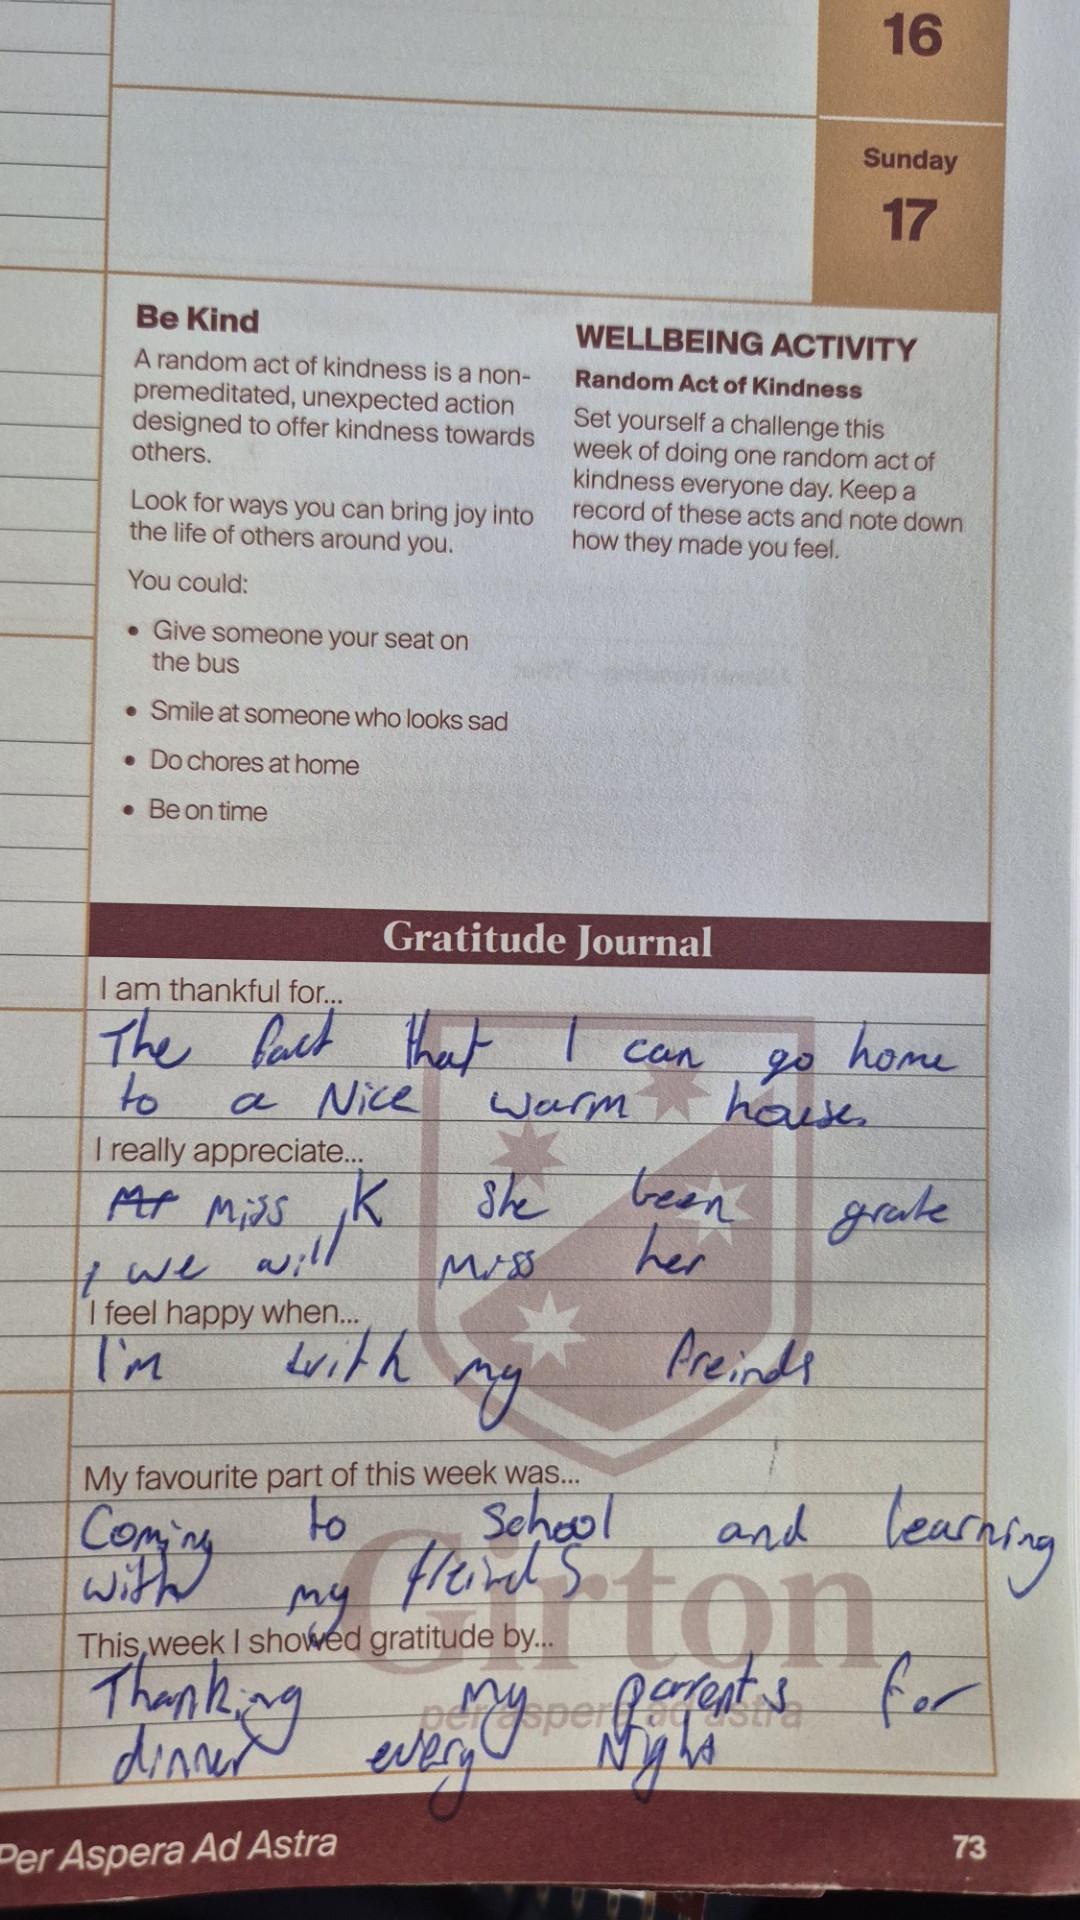 16
Sunday
17
Be Kind
A random act of kindness is a non-
premeditated, unexpected action
designed to offer kindness towards
others.
Look for ways you can bring joy into
the life of others around you.
You could:
• Give someone your seat on
the bus
• Smile at someone who looks sad
• Do chores at home
• Be on time
WELLBEING ACTIVITY
Random Act of Kindness
Set yourself a challenge this
week of doing one random act of
kindness everyone day. Keep a
record of these acts and note down
how they made you feel.
Gratitude Journal
I am thankful for...
The fact that I can go home
to a Nice warm house.
I really appreciate...
Mr Miss K she been grate
, we will miss her
I feel happy when...
I'm with my freinds
My favourite part of this week was...
Coming to school and learning
with my freinds
This week I showed gratitude by...
Thanking my parents for
dinner every Night
Girton
per aspera ad astra
Per Aspera Ad Astra
73